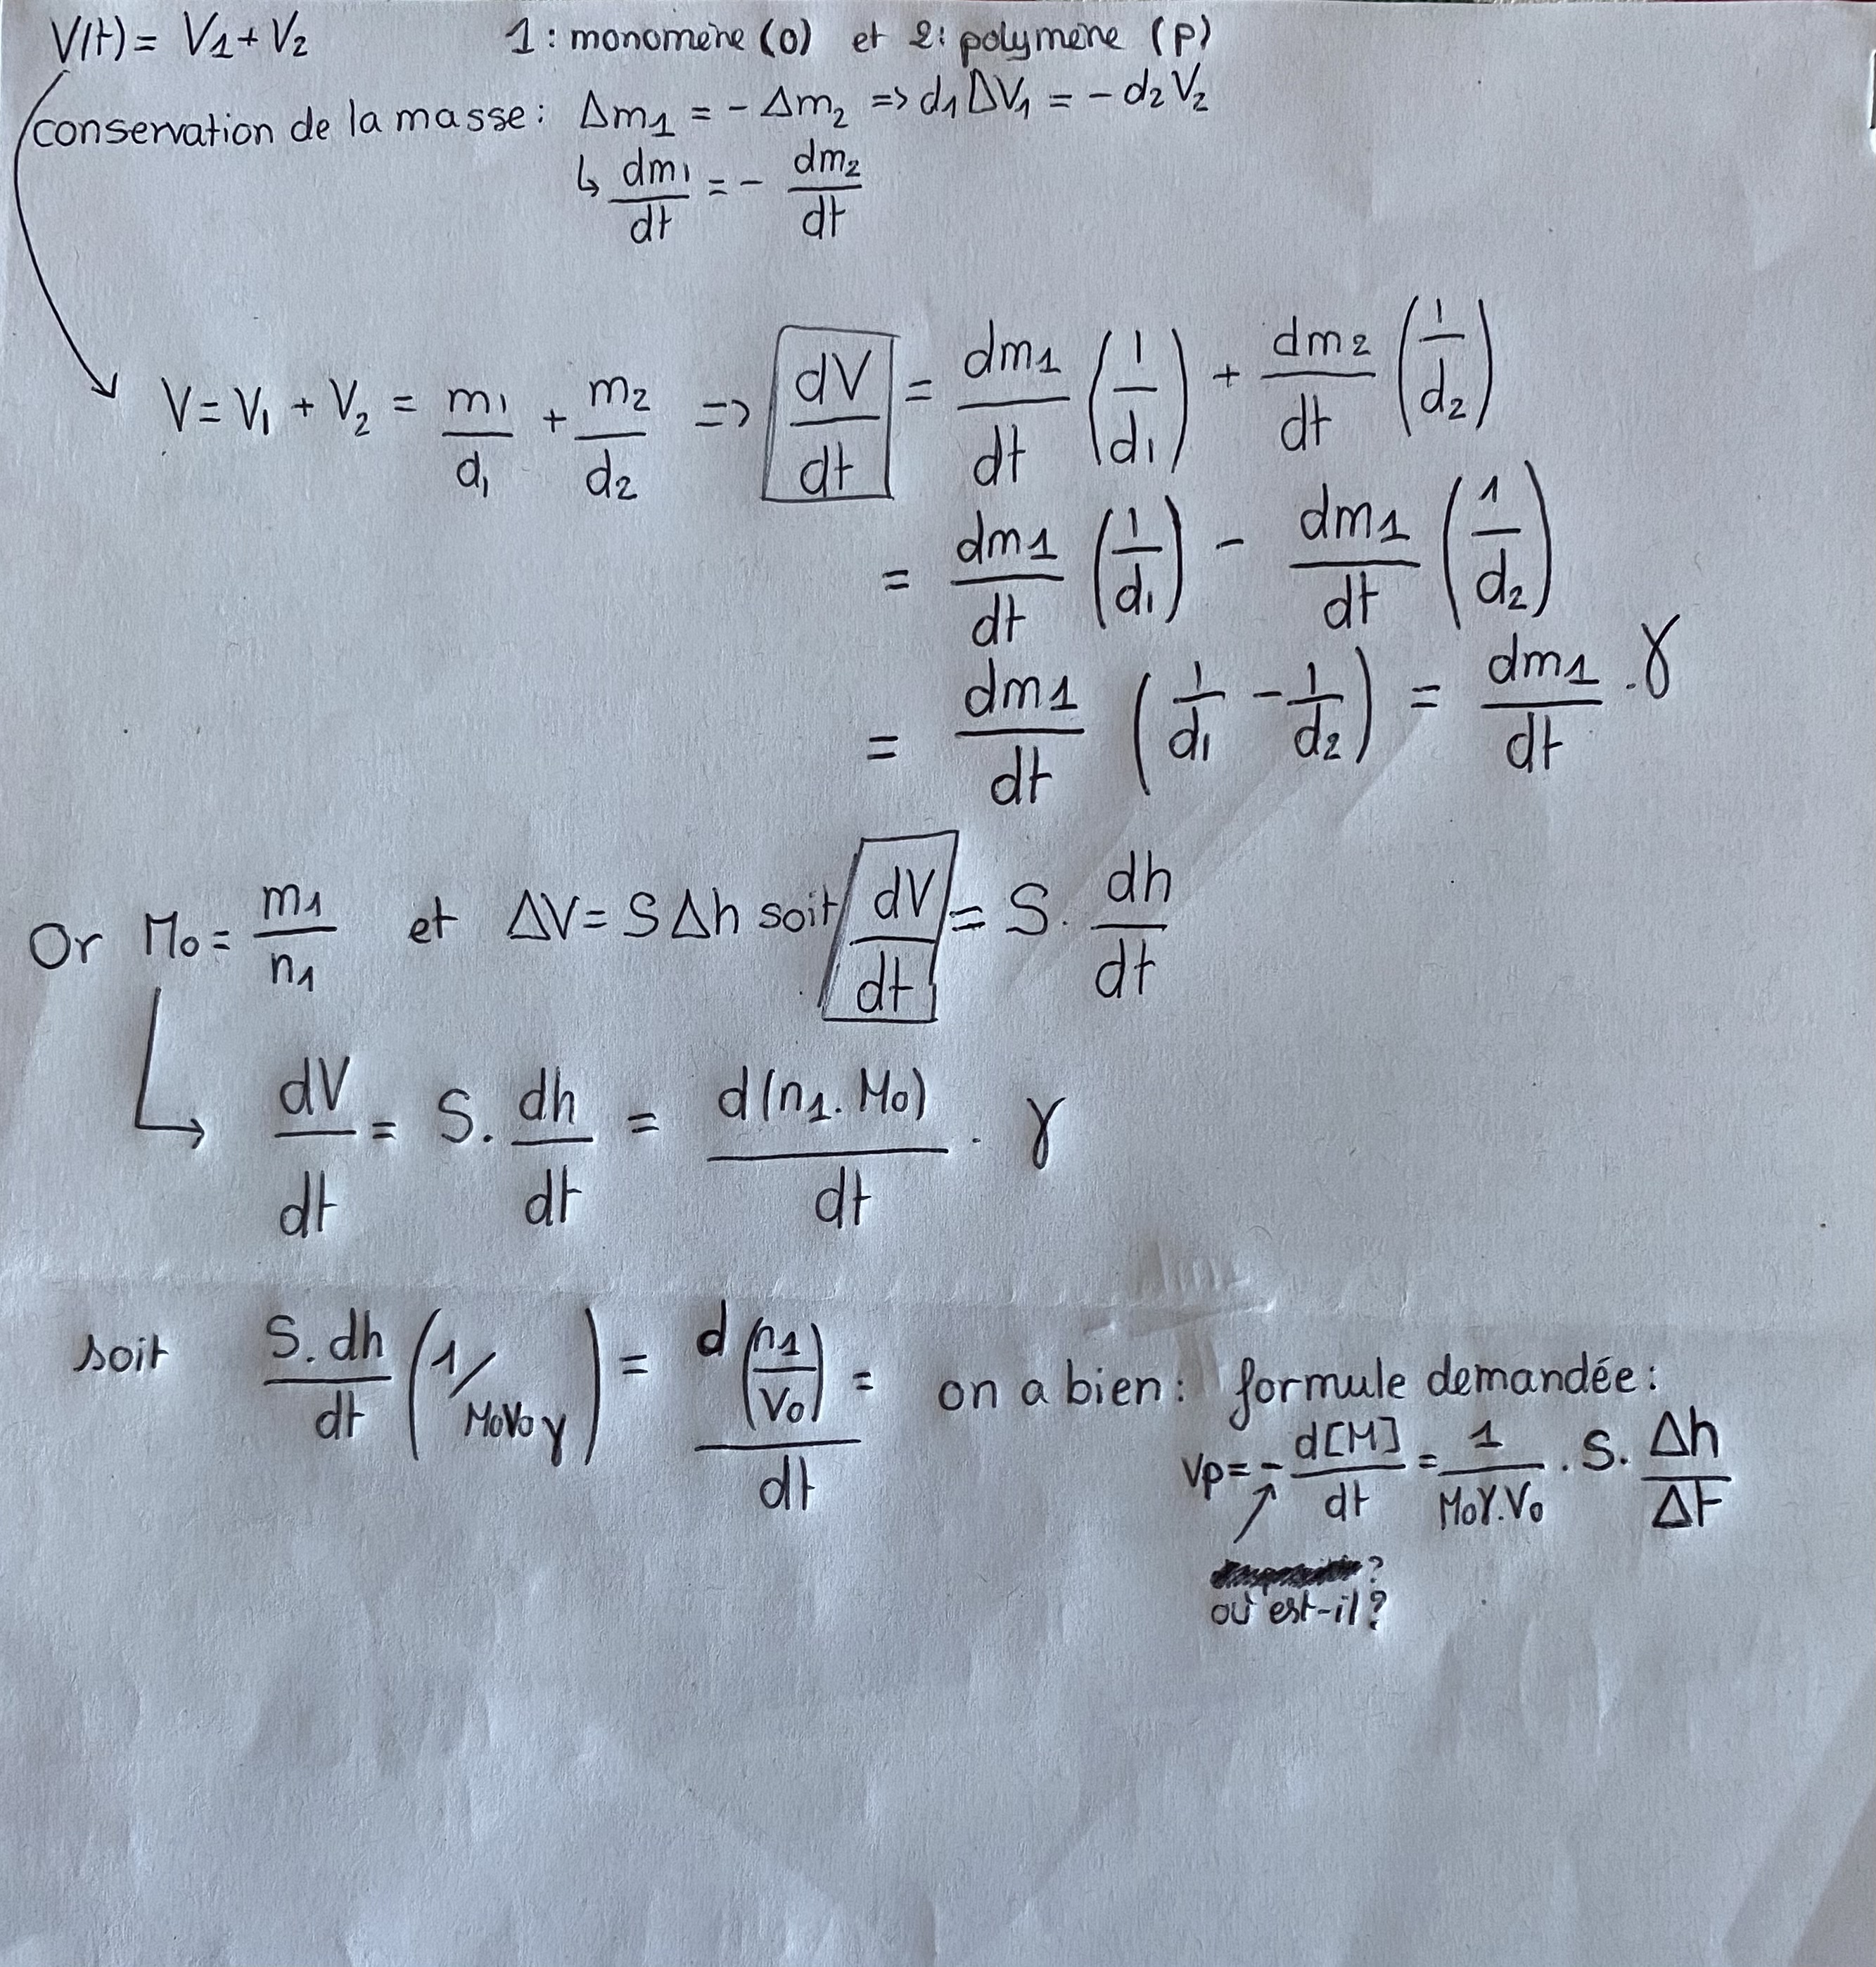 V(t) = V1 + V2 1 : monomère (o) et 2 : polymère (p)
conservation de la masse : Δm1 = - Δm2 => d1 ΔV1 = - d2 V2
↳ dm1/dt = - dm2/dt
V = V1 + V2 = m1/d1 + m2/d2 => dV/dt = dm1/dt (1/d1) + dm2/dt (1/d2)
= dm1/dt (1/d1) - dm1/dt (1/d2)
= dm1/dt (1/d1 - 1/d2) = dm1/dt . γ
Or M0 = m1/n1 et ΔV = S Δh soit dV/dt = S . dh/dt
dV/dt = S . dh/dt = d(n1 . M0)/dt . γ
soit S . dh/dt (1/M0V0γ) = d(n1/V0)/dt = on a bien : formule demandée :
Vp = - d[M]/dt = 1/M0γ.V0 . S . Δh/Δt
?
où est-il ?